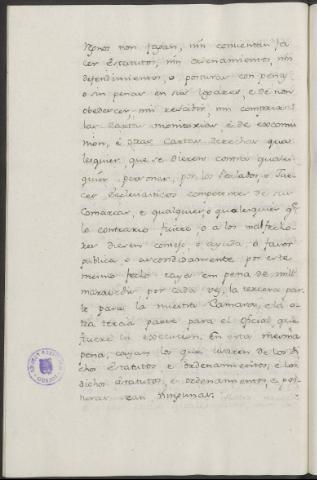 Renos non fagan, nin consientan fa
cer Estatutos, nin ordenamientos, nin
defendimientos, o posturas con pena,
o sin penar en sus logares, e de non
obedescer, ni rescibir, nin comprar
las Cartas monitorias, é de excomu
nion, é otras Cartas derechas qua
lesquier, que se dieren contra quales
quier personas, por los Perlados, o Jue
ces Eclesiasticos competentes de sus
Comarcas, e qualquier, o qualesquier qe
lo contrario ficiere o a los malfecho
res dieren consejo, o ayuda, o favor
publica, o ascondidamente por este
mesmo fecho cayan en pena de mill
maravedis por cada vez, la tercera par
te para la nuestra Camara, e la o
tra tercia parte para el oficial que
ficiere la execucion. En esta mesma
pena, cayan los que usaren de los di
chos Estatutos e ordenamientos, e los
dichos estatutos, e ordenamientos, e pos
turas sean ningunas.